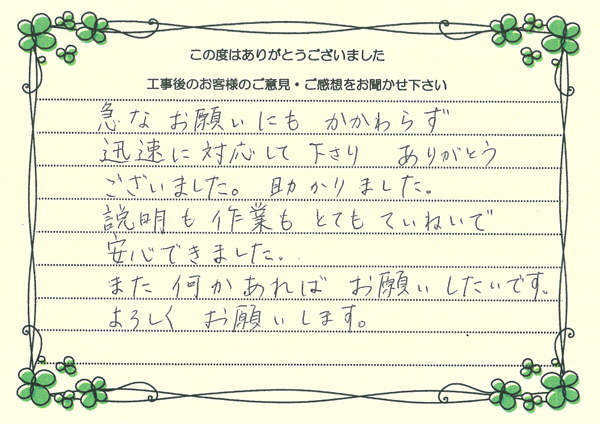 この度はありがとうございました
工事後のお客様のご意見・ご感想をお聞かせ下さい
急なお願いにも かかわらず
迅速に対応して下さり ありがとう
ございました。助かりました。
説明も作業も とても ていねいで
安心できました。
また何かあれば お願いしたいです。
よろしく お願いします。